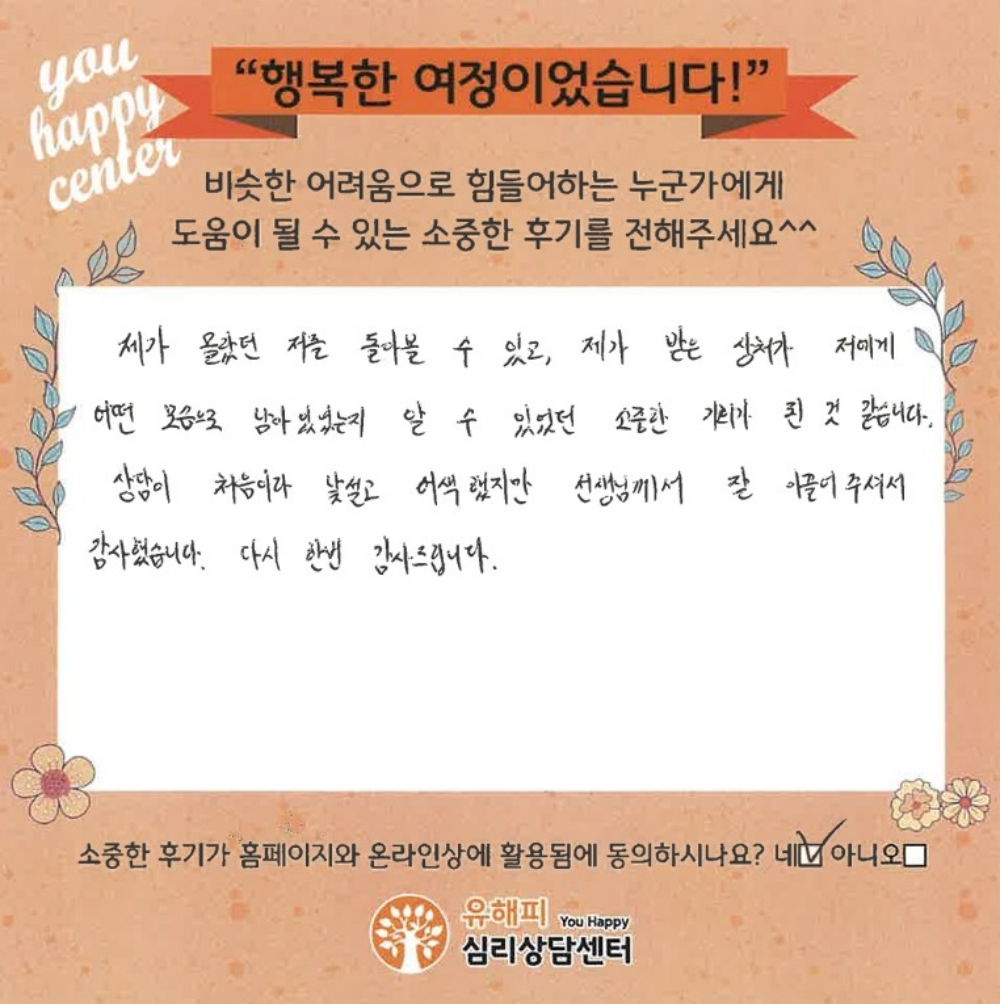 you
happy
center
“행복한 여정이었습니다!”
비슷한 어려움으로 힘들어하는 누군가에게
도움이 될 수 있는 소중한 후기를 전해주세요^^
제가 몰랐던 저를 돌아볼 수 있고, 제가 받은 상처가 저에게
어떤 모습으로 남아있었는지 알 수 있었던 소중한 기회가 된 것 같습니다.
상담이 처음이라 낯설고 어색했지만 선생님께서 잘 이끌어주셔서
감사했습니다. 다시 한번 감사드립니다.
소중한 후기가 홈페이지와 온라인상에 활용됨에 동의하시나요? 네☑ 아니오☐
유해피 You Happy
심리상담센터